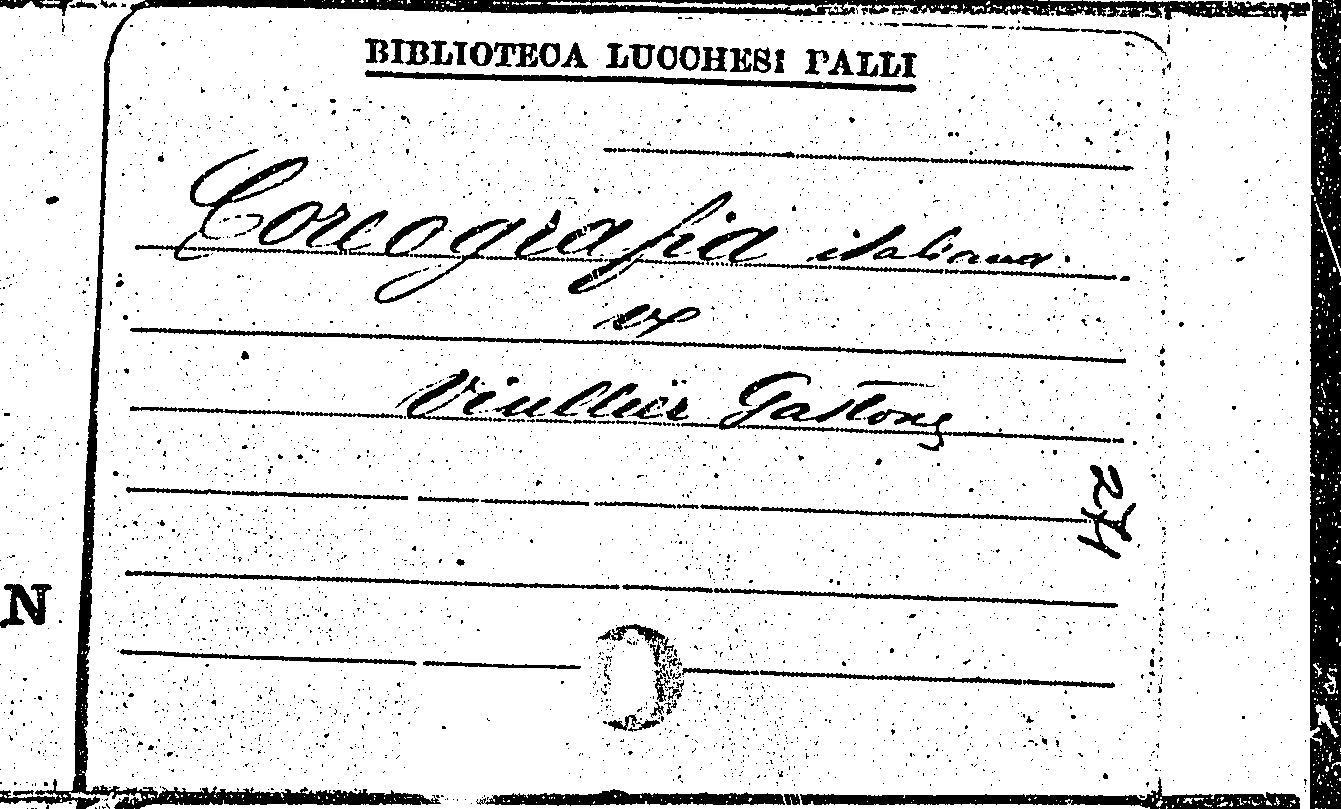 BIBLIOTECA LUCCHESI PALLI
Coreografia italiana.
Viullier Gastong
N